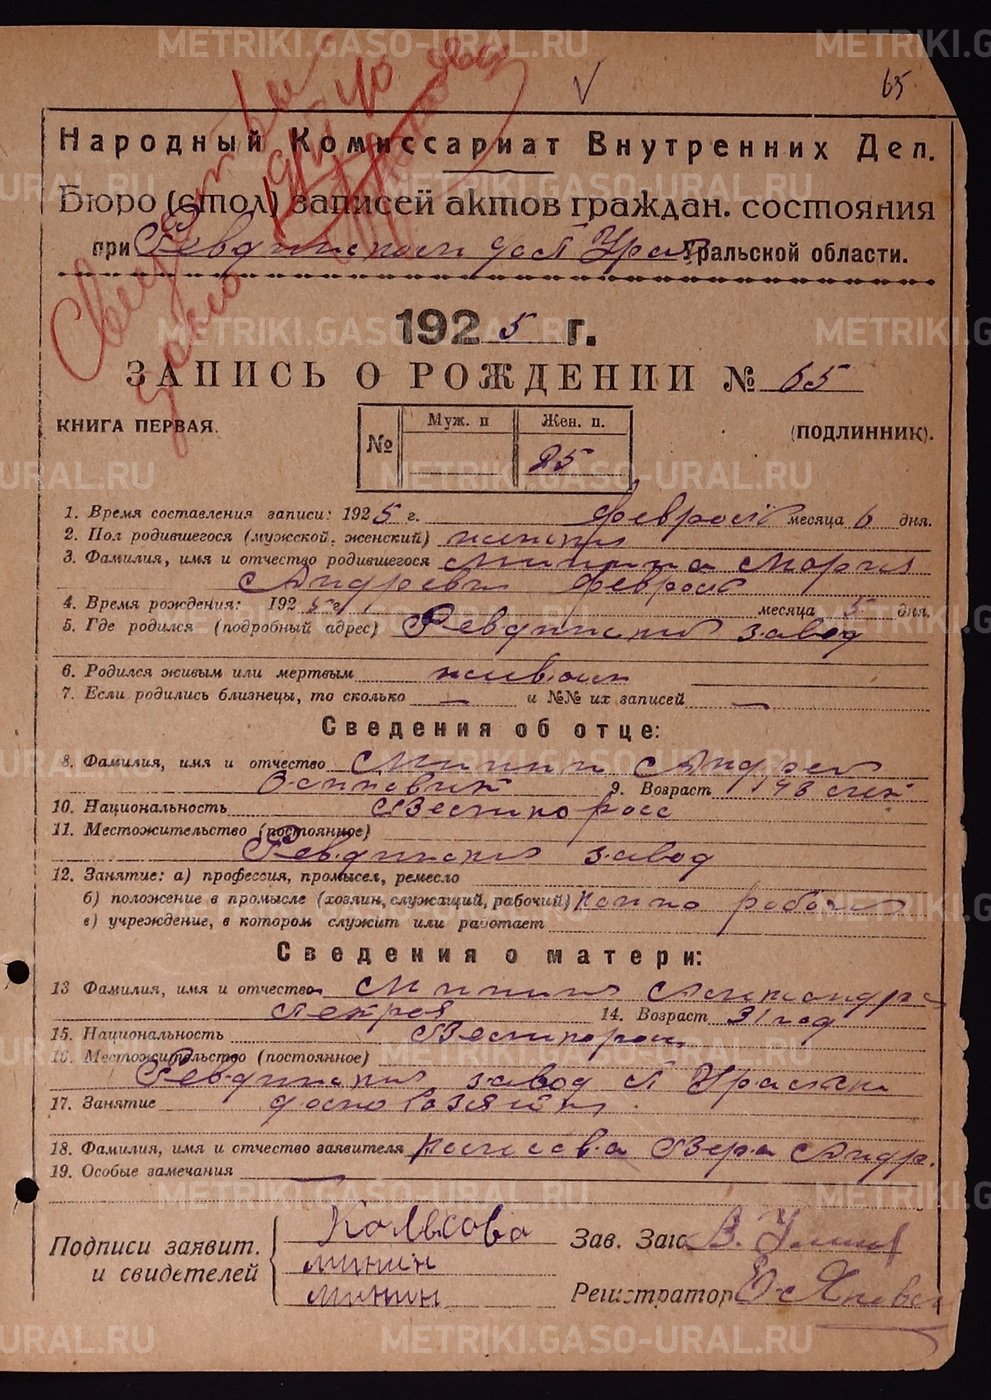 65
Народный Комиссариат Внутренних Дел.
Бюро (стол) записей актов граждан. состояния
при Ревдинском Уральской области.
1925 г.
ЗАПИСЬ О РОЖДЕНИИ № 65
КНИГА ПЕРВАЯ. (ПОДЛИННИК).
№ Муж. п Жен. п.
25
1. Время составления записи: 1925 г. Февраль месяца 6 дня.
2. Пол родившегося (мужской, женский) женский
3. Фамилия, имя и отчество родившегося Минина Мария
Андреевн Февраль
4. Время рождения: 1925 г месяца 5 дня.
5. Где родился (подробный адрес) Ревдинский завод
6. Родился живым или мертвым живым
7. Если родились близнецы, то сколько — и №№ их записей —
Сведения об отце:
8. Фамилия, имя и отчество Минин Андрей
Осипович 9. Возраст 48 лет
10. Национальность Великоросс
11. Местожительство (постоянное)
Ревдинский завод
12. Занятие: а) профессия, промысел, ремесло
б) положение в промысле (хозяин, служащий, рабочий)
в) учреждение, в котором служит или работает
Сведения о матери:
13 Фамилия, имя и отчество Минина Александра
Петров 14. Возраст 31 год
15. Национальность Великоросс
16. Местожительство (постоянное)
Ревдинский завод
17. Занятие домохозяйка
18. Фамилия, имя и отчество заявителя Вера Андр.
19. Особые замечания
Подписи заявит. и свидетелей
Колысова
минин
минин
Зав. Загс В.
Регистратор
METRIKI.GASO-URAL.RU